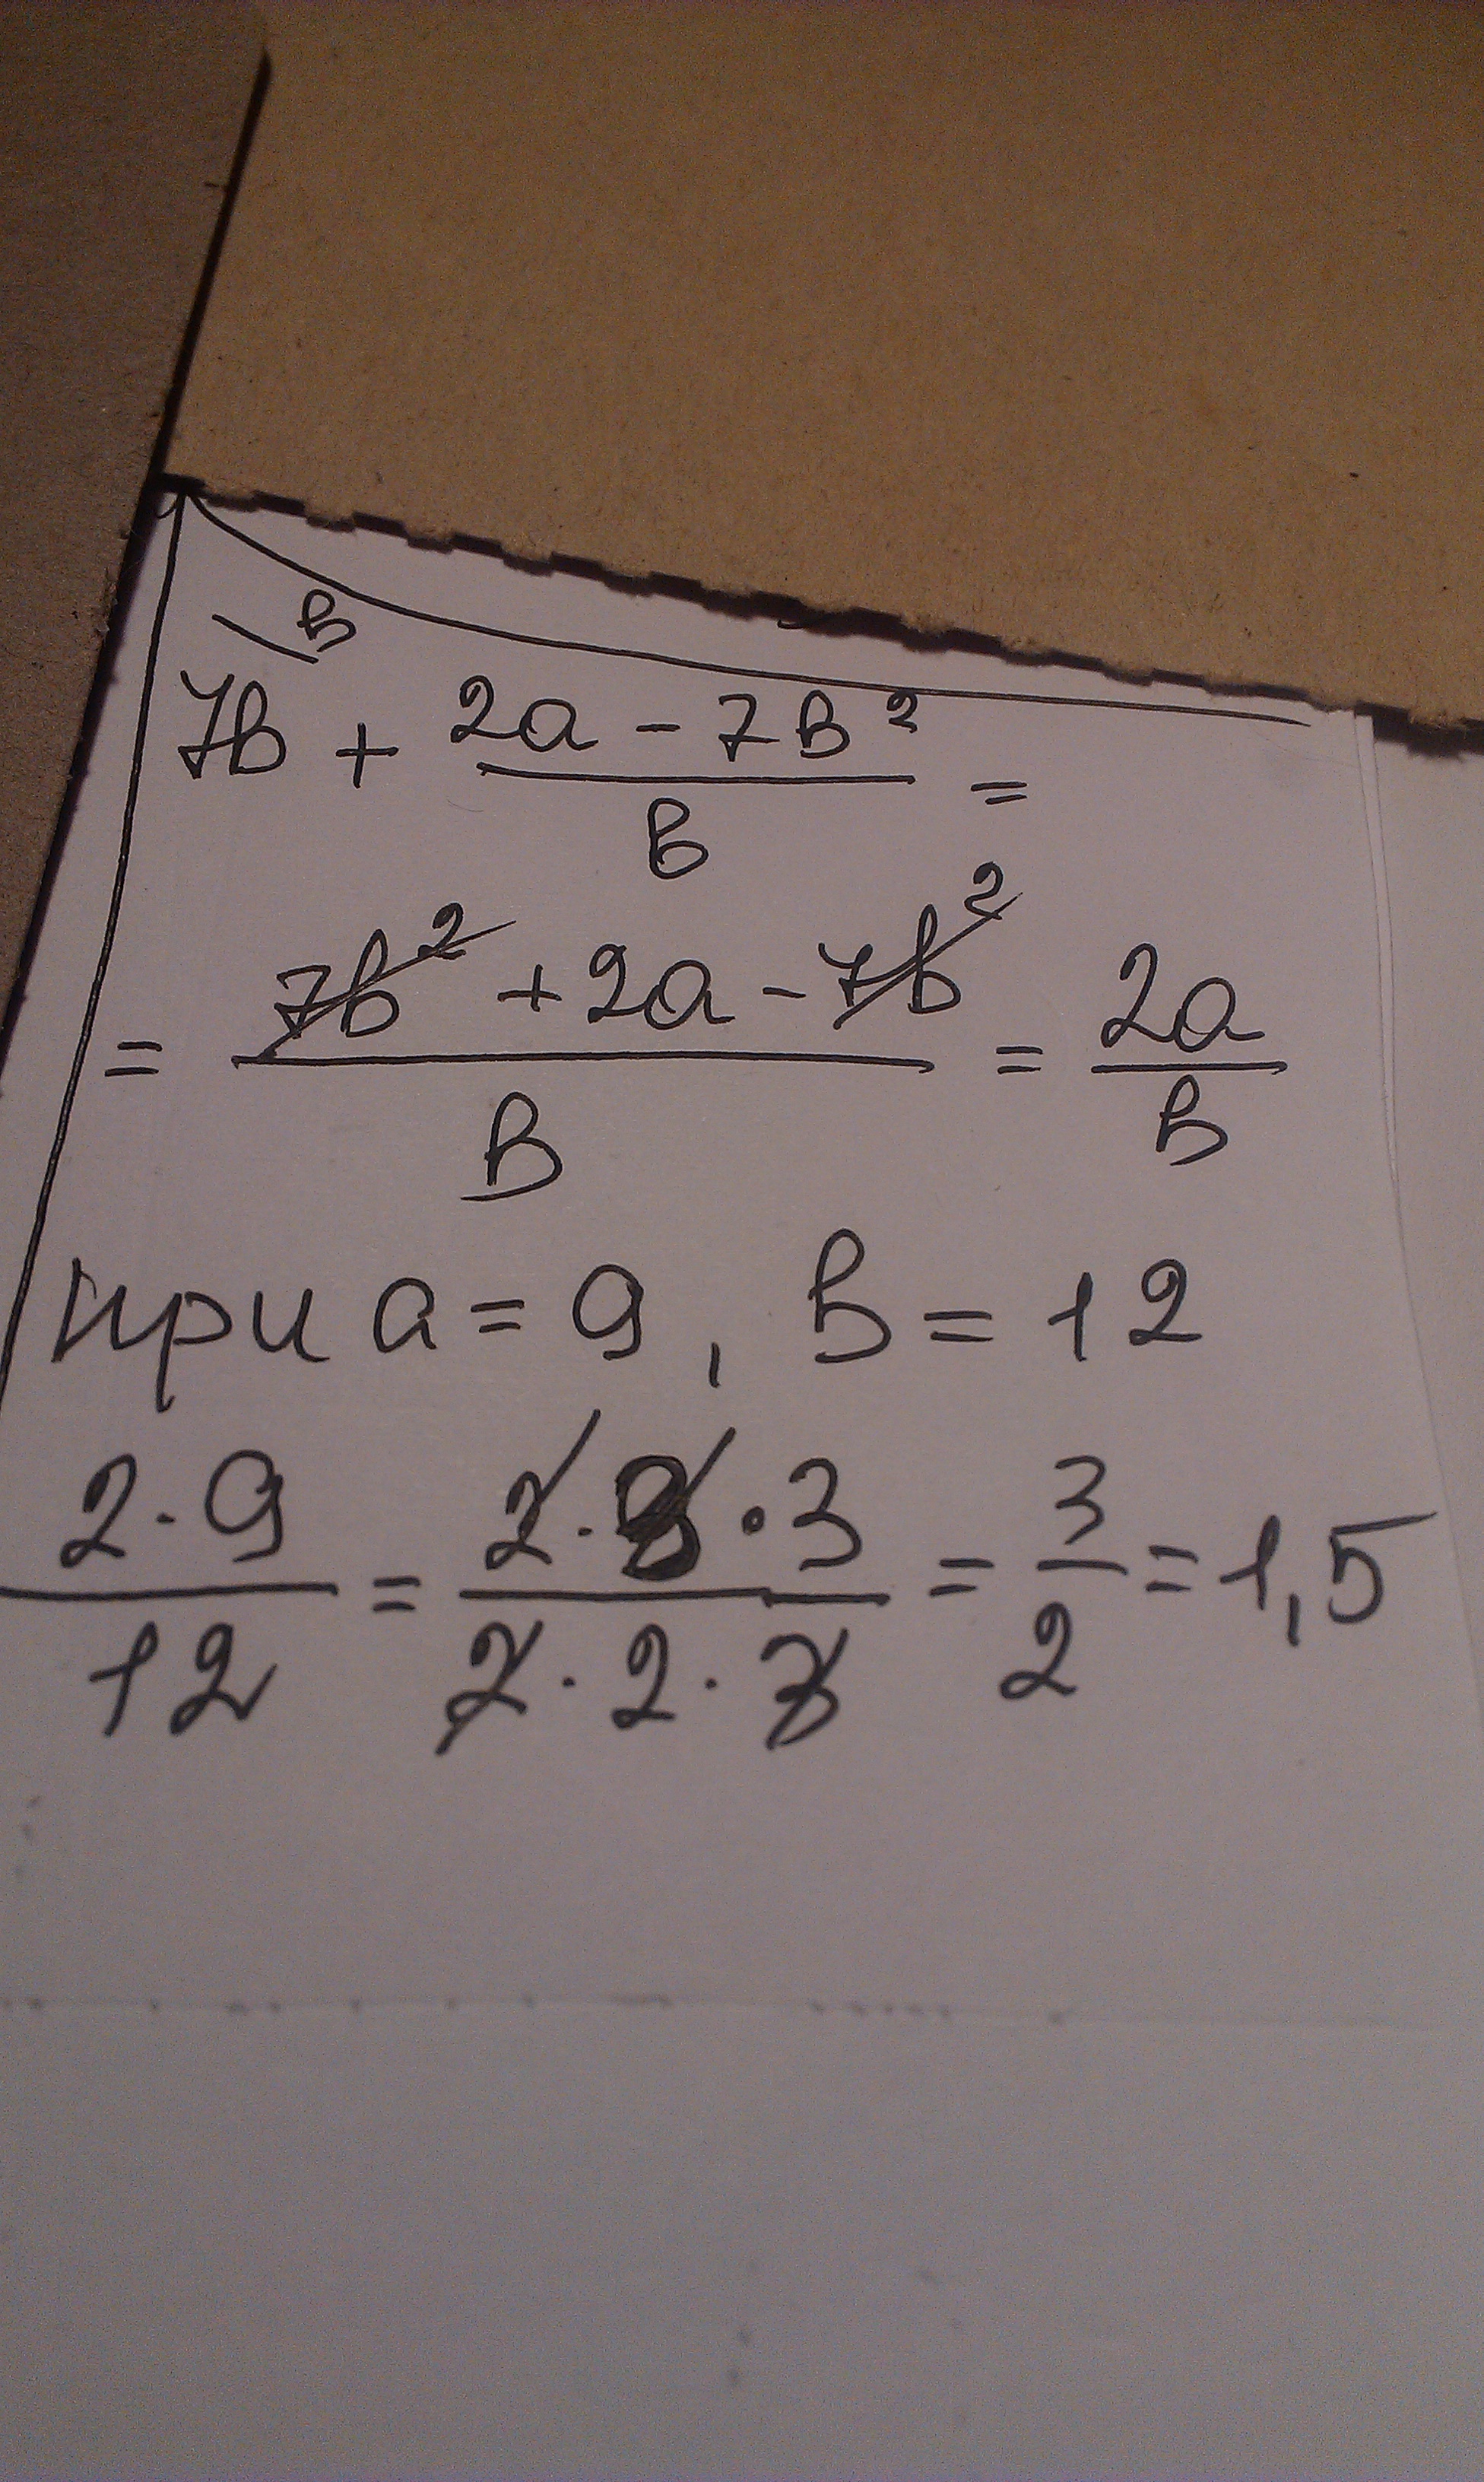 \в
7b + (2a - 7в²)/в =
= (7b² + 2a - 7b²)/в = 2a/в
при a = 9, в = 12
(2·9)/12 = (2·3·3)/(2·2·3) = 3/2 = 1,5